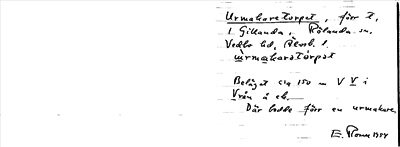 Urmakaretorpet, förr t.
l. Gillanda, Rölanda sn.
Vedbo hd, Älvsb. l.
ùrmakaretórpet
Beläget c:a 150 m V V i
Vrån å ek.
Där bodde förr en urmakare.
E. 1954